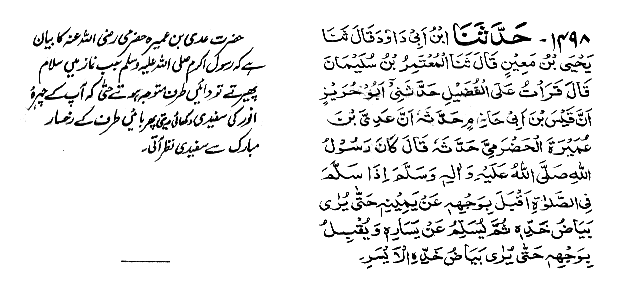 ۱۴۹۸- حَدَّثَنَا ابْنُ اَبِیْ دَاوٗدَ قَالَ ثَنَا
یَحْیَی بْنُ مَعِیْنٍ قَالَ ثَنَا الْمُعْتَمِرُ بْنُ سُلَیْمَانَ
قَالَ قَرَأْتُ عَلَی الْفُضَیْلِ حَدَّثَنِیْ اَبُوْ حُرَیْزٍ
اَنَّ قَیْسَ بْنَ اَبِیْ حَازِمٍ حَدَّثَہٗ اَنَّ عَدِیَّ بْنَ
عَمِیْرَۃَ الْحَضْرَمِیَّ حَدَّثَہٗ قَالَ کَانَ رَسُوْلُ
اللہِ صَلَّی اللہُ عَلَیْہِ وَاٰلِہٖ وَسَلَّمَ اِذَا سَلَّمَ
فِی الصَّلٰوۃِ اَقْبَلَ بِوَجْھِہٖ عَنْ یَمِیْنِہٖ حَتّٰی یُرٰی
بَیَاضُ خَدِّہٖ ثُمَّ یُسَلِّمُ عَنْ یَسَارِہٖ وَیُقْبِلُ
بِوَجْھِہٖ حَتّٰی یُرٰی بَیَاضُ خَدِّہِ الْاَیْسَرِ۔
حضرت عدی بن عمیرہ حضرمی رضی اللہ عنہ کا بیان
ہے کہ رسول اکرم صلی اللہ علیہ وسلم جب نماز میں سلام
پھیرتے تو دائیں طرف متوجہ ہوتے حتیٰ کہ آپ کے چہرۂ
انور کی سفیدی دکھائی دیتی پھر بائیں طرف کے رخسار
مبارک سے سفیدی نظر آتی۔